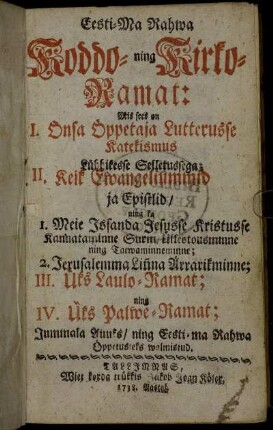 Eesti-Ma Rahwa
Koddo- ning Kirko-
Ramat:
Mis sees on
I. Önsa Öppetaja Lutterusse
Katekismus
Lühhikesse Selletussega;
II. Keik Ewangeliummid
ja Epistlid/
ning ka
1. Meie Issanda Jesusse Kristusse
Kannataminne Surm, Ülestousminne
ning Taewaminneminne;
2. Jerusalemma Linna Ärrarikminne;
III. Üks Laulo-Ramat;
ning
IV. Üks Palwe-Ramat;
Jummala Auuks/ ning Eesti-ma Rahwa
Öppetusseks walmistud.
TALLINNAS,
Wiet korda trükkis Jakob Joan Köler,